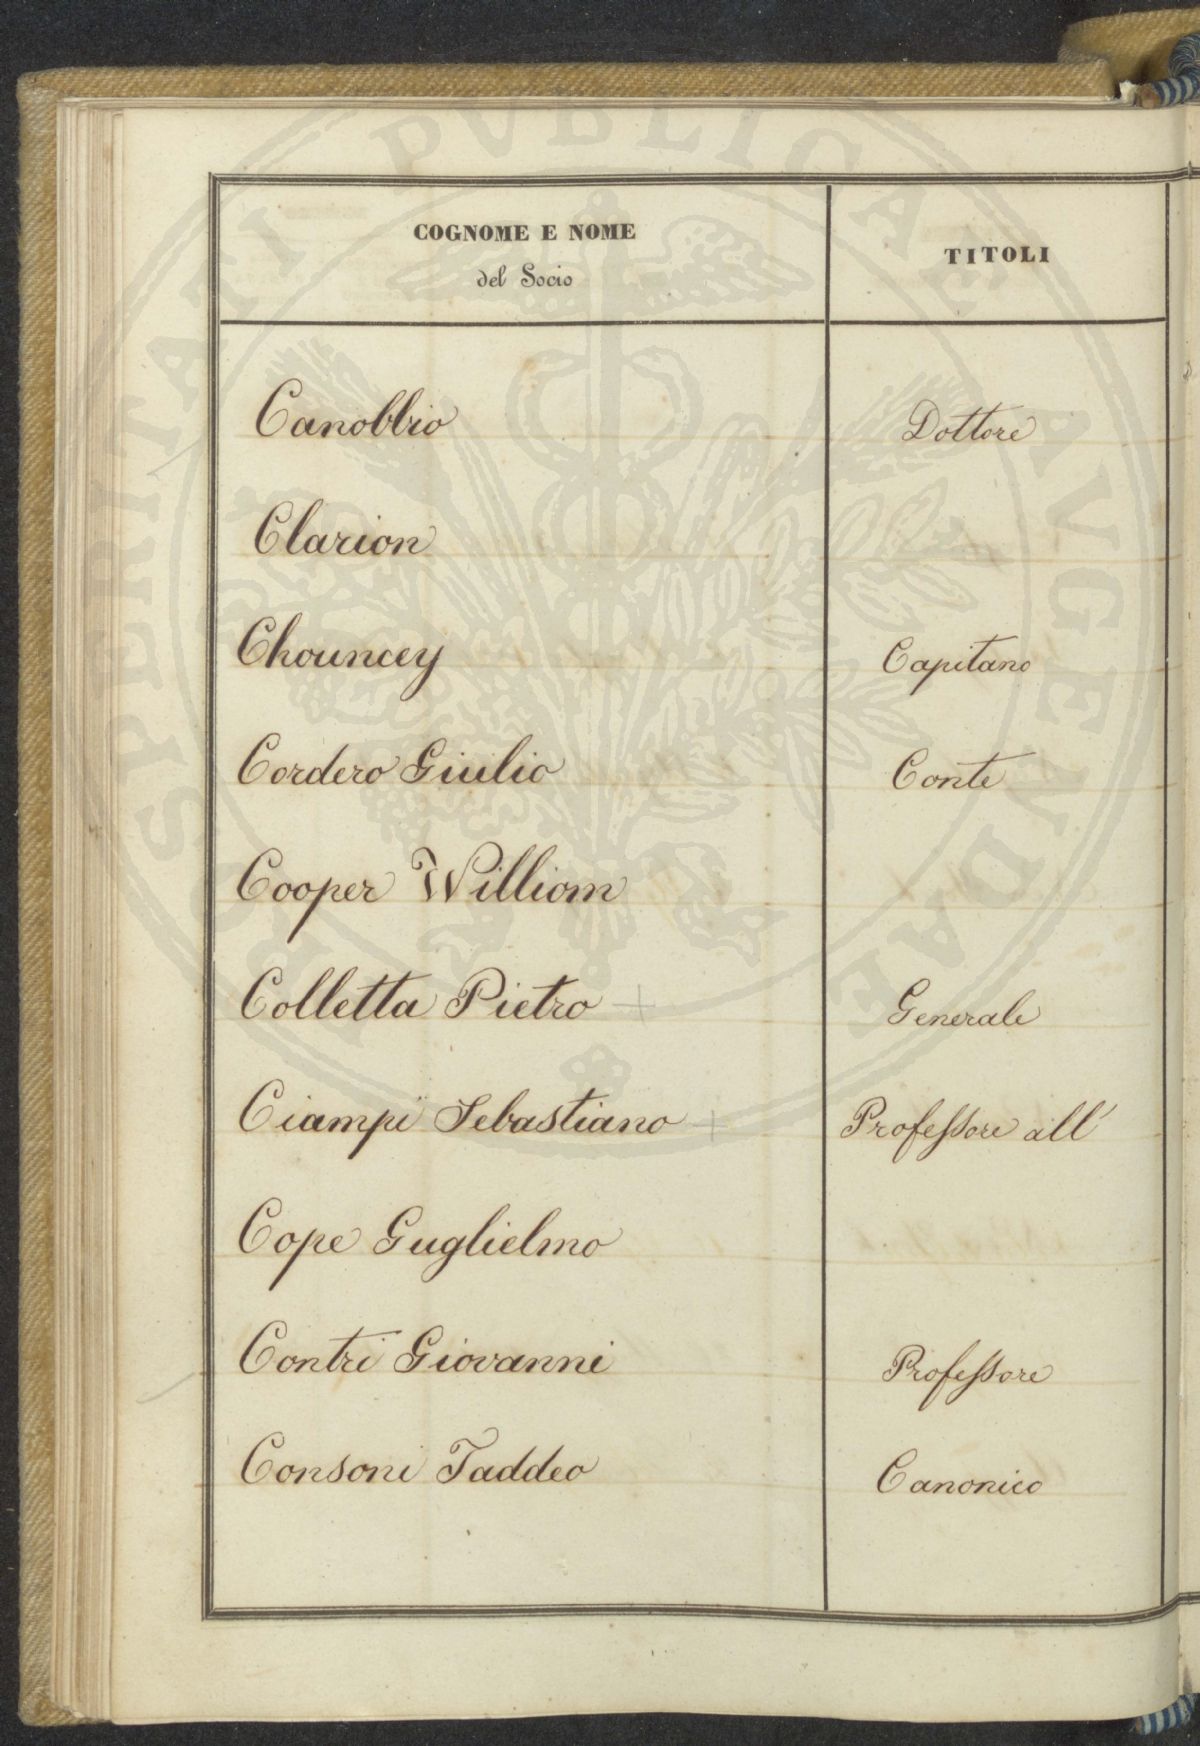 COGNOME E NOME
del Socio
TITOLI
Canobbio Dottore
Clarion
Chouncey Capitano
Cordero Giulio Conte
Cooper William
Colletta Pietro + Generale
Ciampi Sebastiano + Professore all'
Cope Guglielmo
Contri Giovanni Professore
Consoni Taddeo Canonico
PROSPERITATI PVBLICAE AVGENDAE